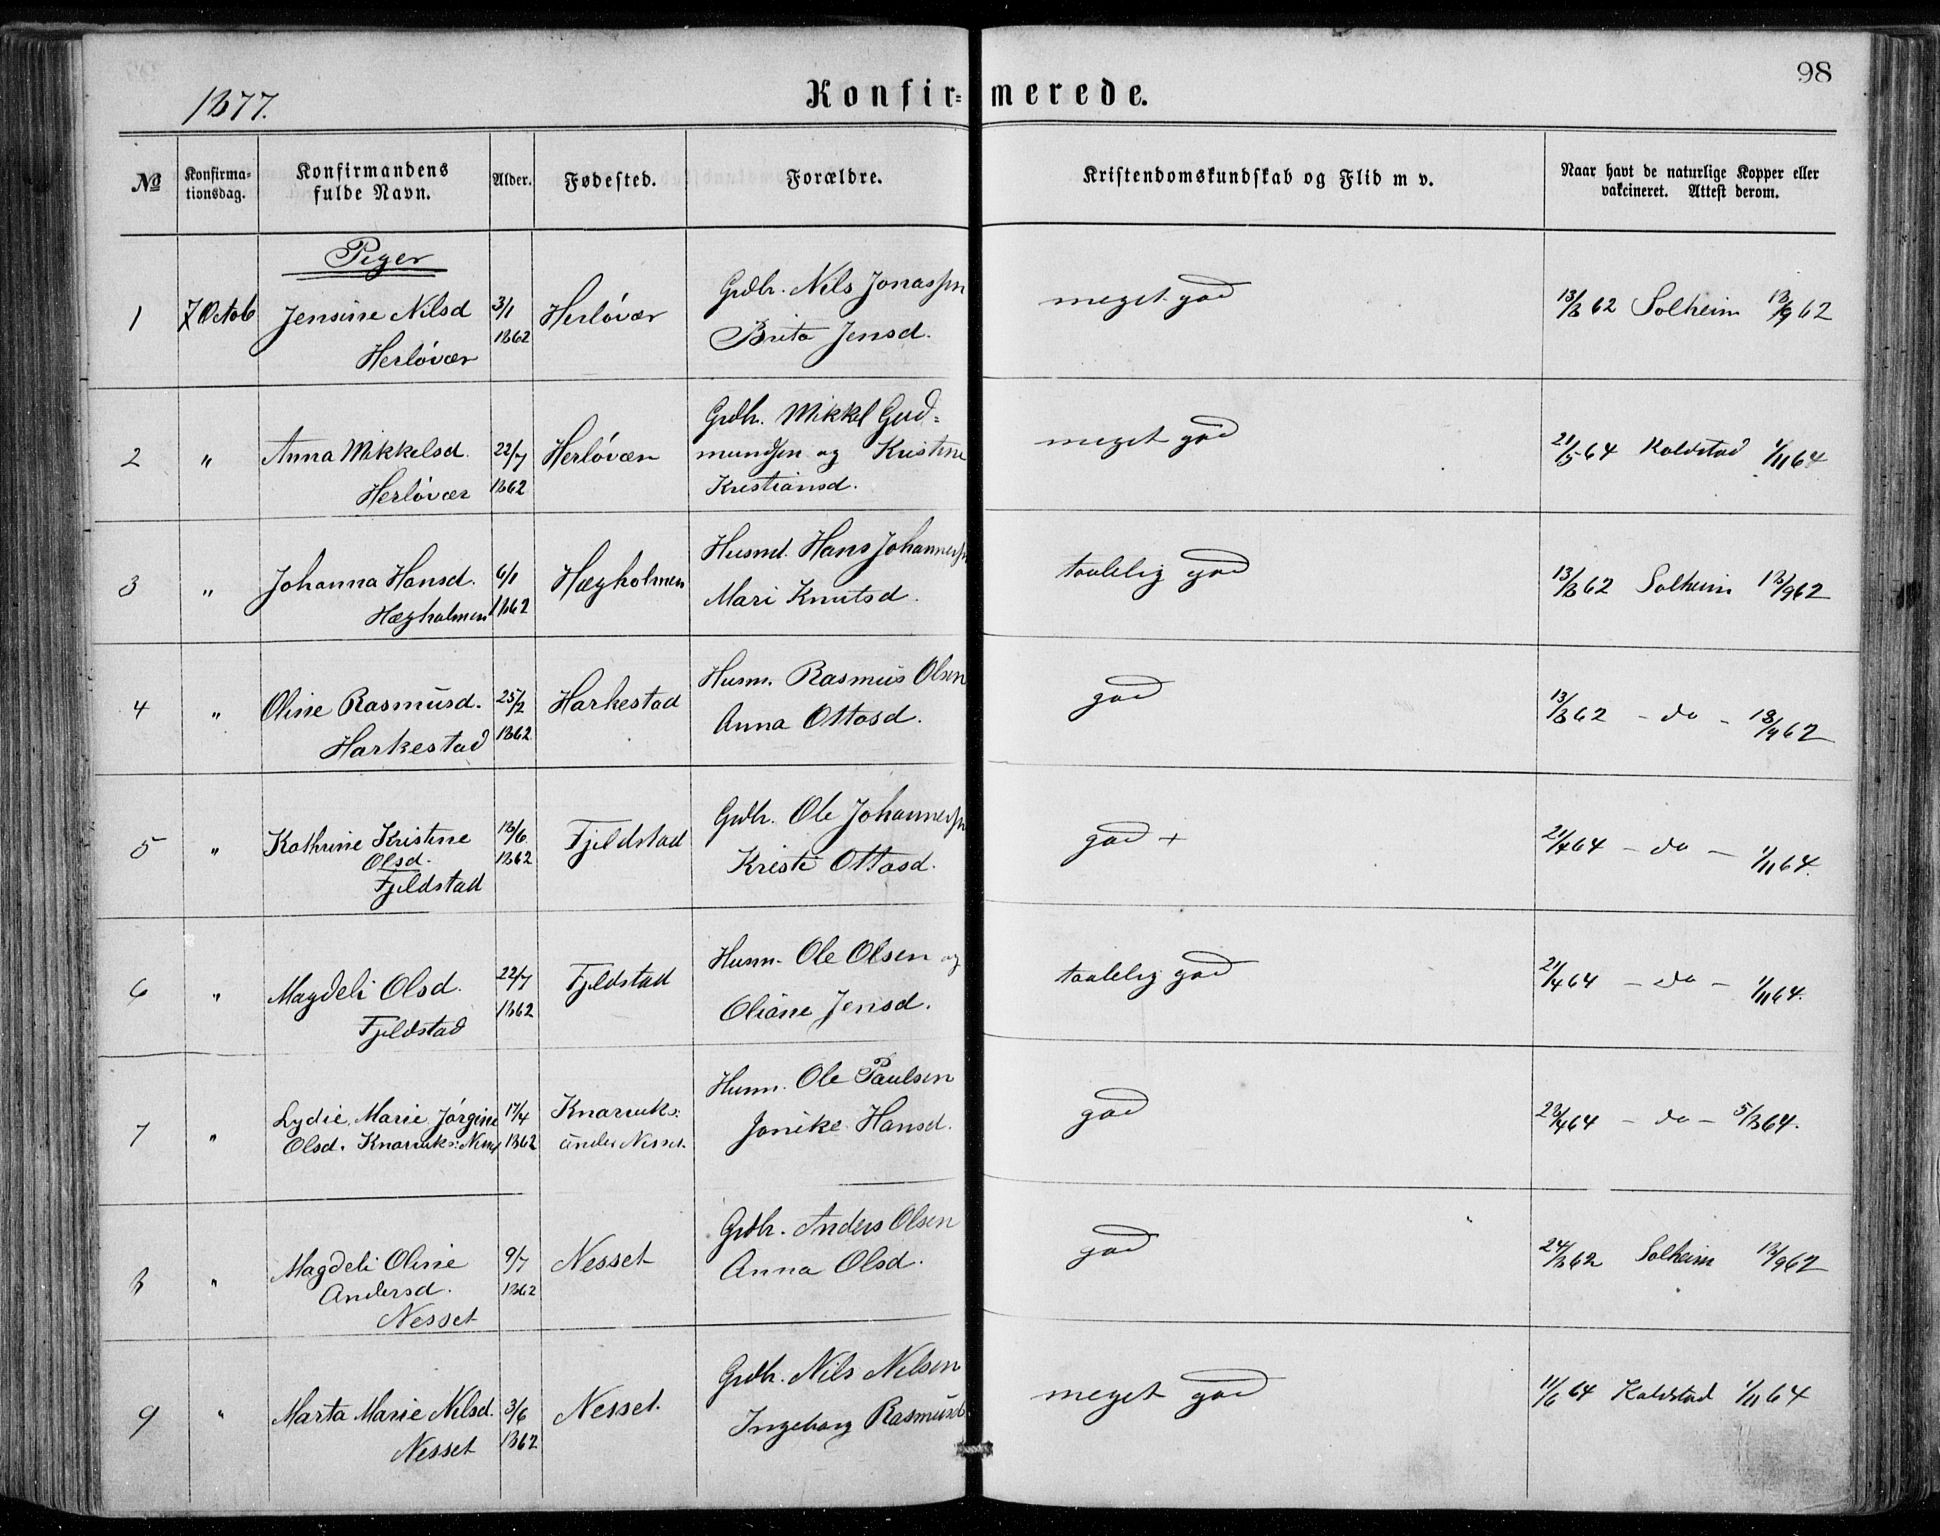 98
1877.
Konfir= merede.
No Konfirma-tionsdag. Konfirmandens fulde Navn. Alder. Fødested. Forældre. Kristendomskundskab og Flid m v. Naar havt de naturlige Kopper eller vakcineret. Attest derom.
Piger
1 7 Octob Jensine Nilsd 3/1 Herløvær Grdbr. Nils Jonassen meget god 13/8 62 Solheim 18/9 62
Herløvær 1862 Brita Jensd.
2 " Anna Mikkelsd. 22/7 Herløvær Grdbr. Mikkel Gud= meget god 21/5 64 Koldstad 1/11 64
Herløvær 1862 mundsen og Kristine
Kristiansd.
3 " Johanna Hansd. 6/1 Hægholmen Husmd. Hans Johannessn taalelig god 13/8 62 Solheim 18/9 62
Hægholmen 1862 Mari Knutsd.
4 " Oline Rasmusd. 25/2 Harkestad Husm. Rasmus Olsen god 13/8 62 - do - 18/9 62
Harkestad 1862 Anna Ottosd.
5 " Kathrine Kristine 18/6 Fjeldstad Grdbr. Ole Johannessn god + 21/4 64 - do - 1/11 64.
Olsd. 1862 Kristi Ottosd.
Fjeldstad
6 " Magdeli Olsd. 22/7 Fjeldstad Husm. Ole Olsen og taalelig god 21/4 64 - do - 1/11 64.
Fjeldstad 1862 Oliane Jensd.
7 " Lydie Marie Jørgine 17/4 Knarviks: Husm. Ole Paulsen god 23/4 64 - do - 5/8 64.
Olsd. Knarviks: Nesset 1862 under Nesset. Jonike Hansd.
8 " Magdeli Oline 9/7 Nesset Grdbr. Anders Olsen god 24/8 62 Solheim 18/9 62
Andersd. 1862 Anna Olsd.
Nesset
9 " Marta Marie Nilsd. 3/6 Nesset. Grdbr. Nils Nilsen meget god 11/6 64 Koldstad 1/11 64
Nesset 1862 Ingeborg Rasmusd.